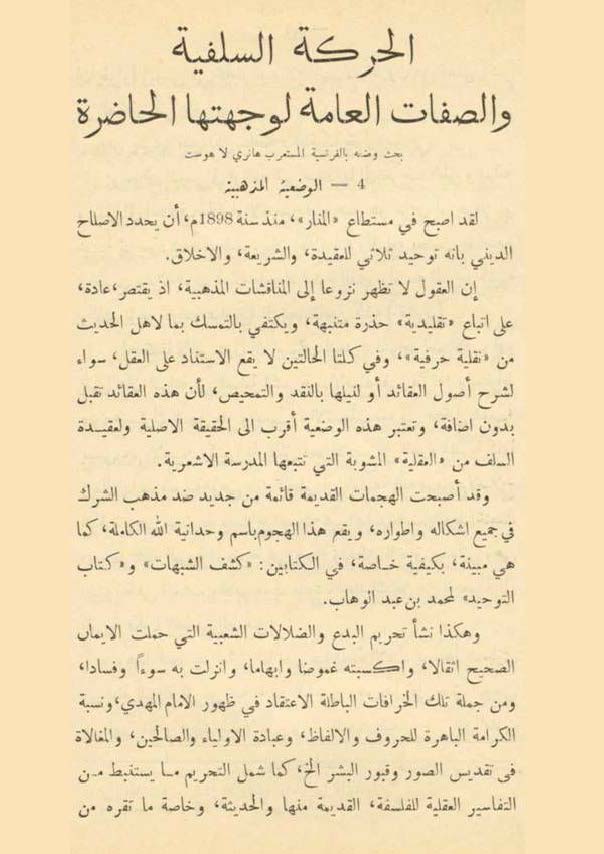 الحركة السلفية
والصفات العامة لوجهتها الحاضرة
بحث وضعه بالفرنسية المستعرب هانري لاهوست
4 — الوضعية المذهبية
لقد اصبح في مستطاع «المنار»، منذ سنة 1898م، أن يحدد الاصلاح
الديني بانه توحيد ثلاثي للعقيدة، والشريعة، والاخلاق.
إن العقول لا تظهر نزوعا إلى المناقشات المذهبية، اذ يقتصر، عادة،
على اتباع «تقليدية» حذرة متنبهة، ويكتفي بالتمسك بما لاهل الحديث
من «نقلية حرفية»، وفي كلتا الحالتين لا يقع الاستناد على العقل، سواء
لشرح أصول العقائد أو لنيلها بالنقد والتمحيص، لأن هذه العقائد تقبل
بدون اضافة، وتعتبر هذه الوضعية أقرب الى الحقيقة الاصلية ولعقيدة
السلف من «العقلية» المشوبة التي تتبعها المدرسة الاشعرية.
وقد أصبحت الهجمات القديمة قائمة من جديد ضد مذهب الشرك
في جميع اشكاله واطواره، ويقع هذا الهجوم باسم وحدانية الله الكاملة، كما
هي مبينة، بكيفية خاصة، في الكتابين: «كشف الشبهات» و «كتاب
التوحيد» لمحمد بن عبد الوهاب.
وهكذا نشأ تحريم البدع والضلالات الشعبية التي حملت الايمان
الصحيح اثقالا، واكسبته غموضا وابهاما، وانزلت به سوءاً وفسادا،
ومن جملة تلك الخرافات الباطلة الاعتقاد في ظهور الامام المهدي، ونسبة
الكرامة الباهرة للحروف والالفاظ، وعبادة الاولياء والصالحين، والمغالاة
في تقديس الصور وقبور البشر الخ، كما شمل التحريم ما يستنبط من
التفاسير العقلية للفلسفة، القديمة منها والحديثة، وخاصة ما تقره من